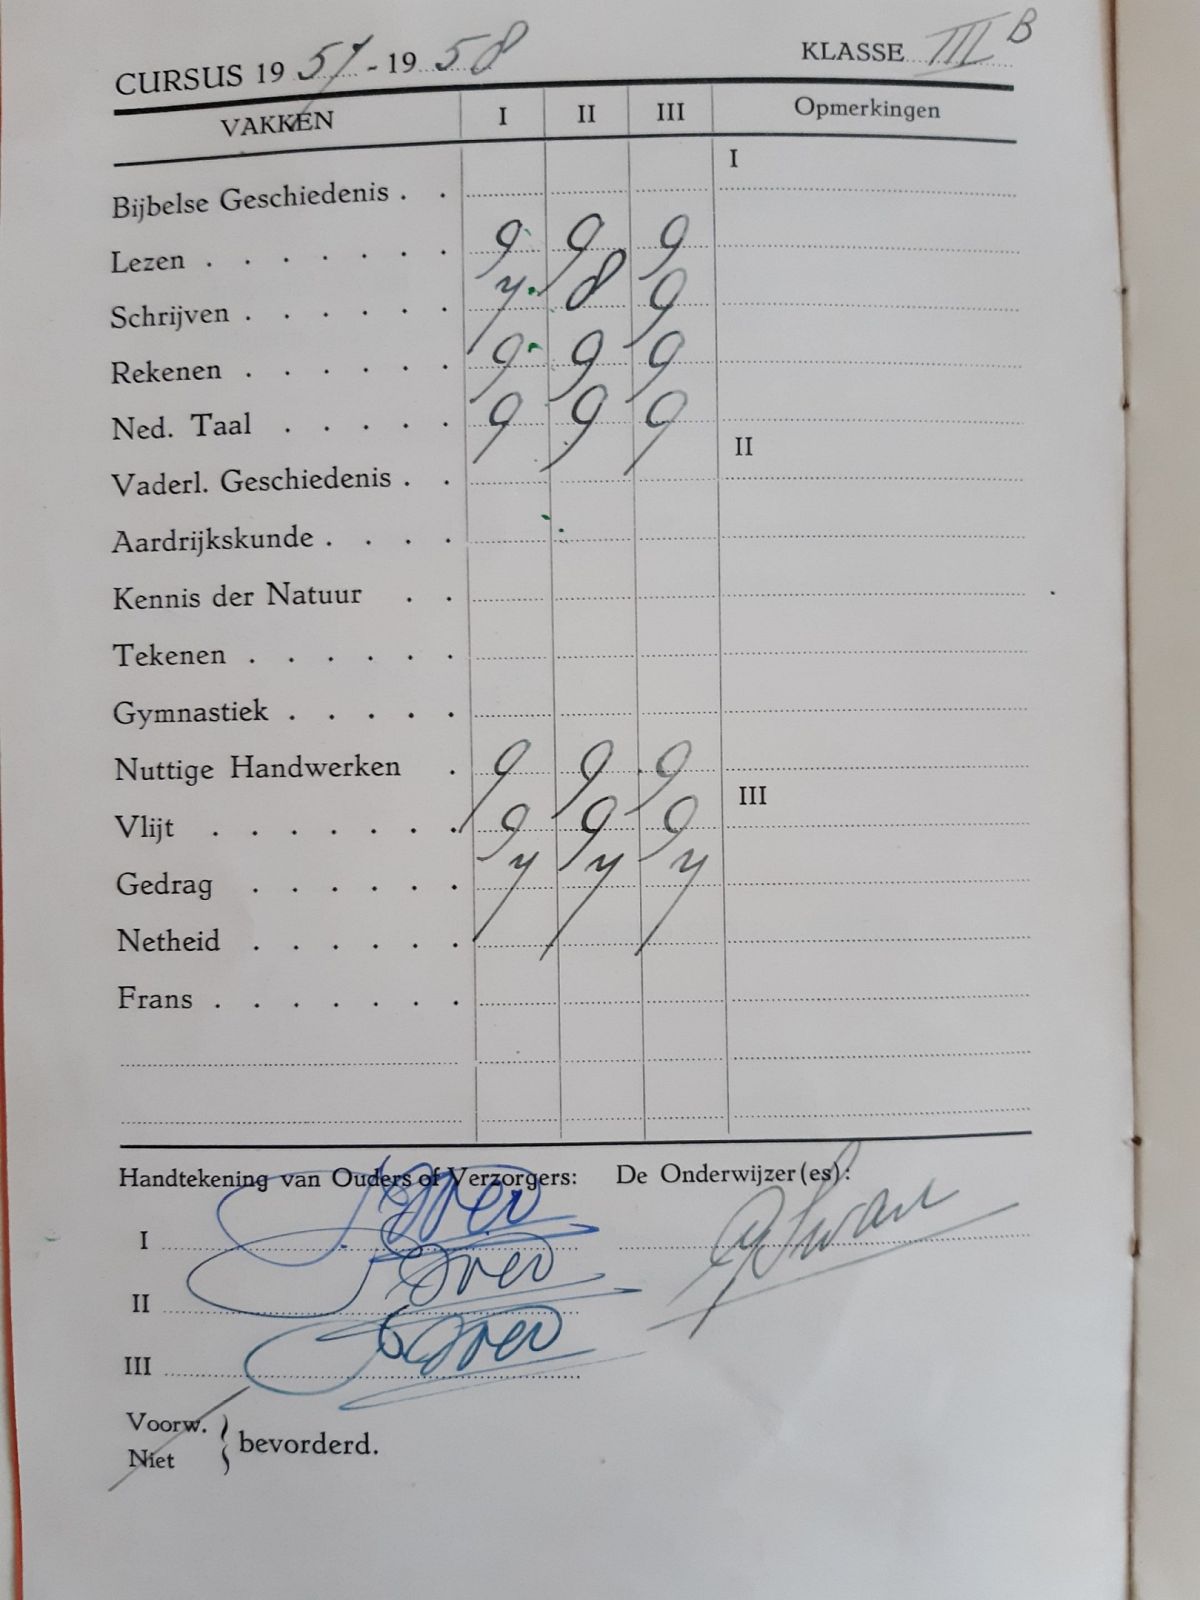 CURSUS 19 57 - 19 58 KLASSE III B
VAKKEN I II III Opmerkingen
I
Bijbelse Geschiedenis . .
Lezen . . . . . . . 9 9 9
Schrijven . . . . . . 7 8 9
Rekenen . . . . . . 9 9 9
Ned. Taal . . . . . 9 9 9
II
Vaderl. Geschiedenis . .
Aardrijkskunde . . . .
Kennis der Natuur . .
Tekenen . . . . . .
Gymnastiek . . . . .
Nuttige Handwerken . 9 9 9
III
Vlijt . . . . . . . 9 9 9
Gedrag . . . . . . 7 7 7
Netheid . . . . . .
Frans . . . . . . .
Handtekening van Ouders of Verzorgers: De Onderwijzer(es):
I
II
III
Voorw.
Niet
} bevorderd.